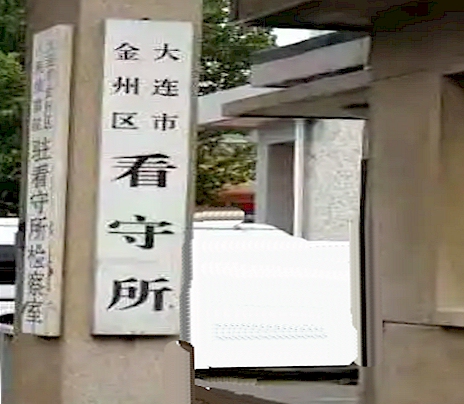 大连市
金州区
看守所
驻看守所检察室